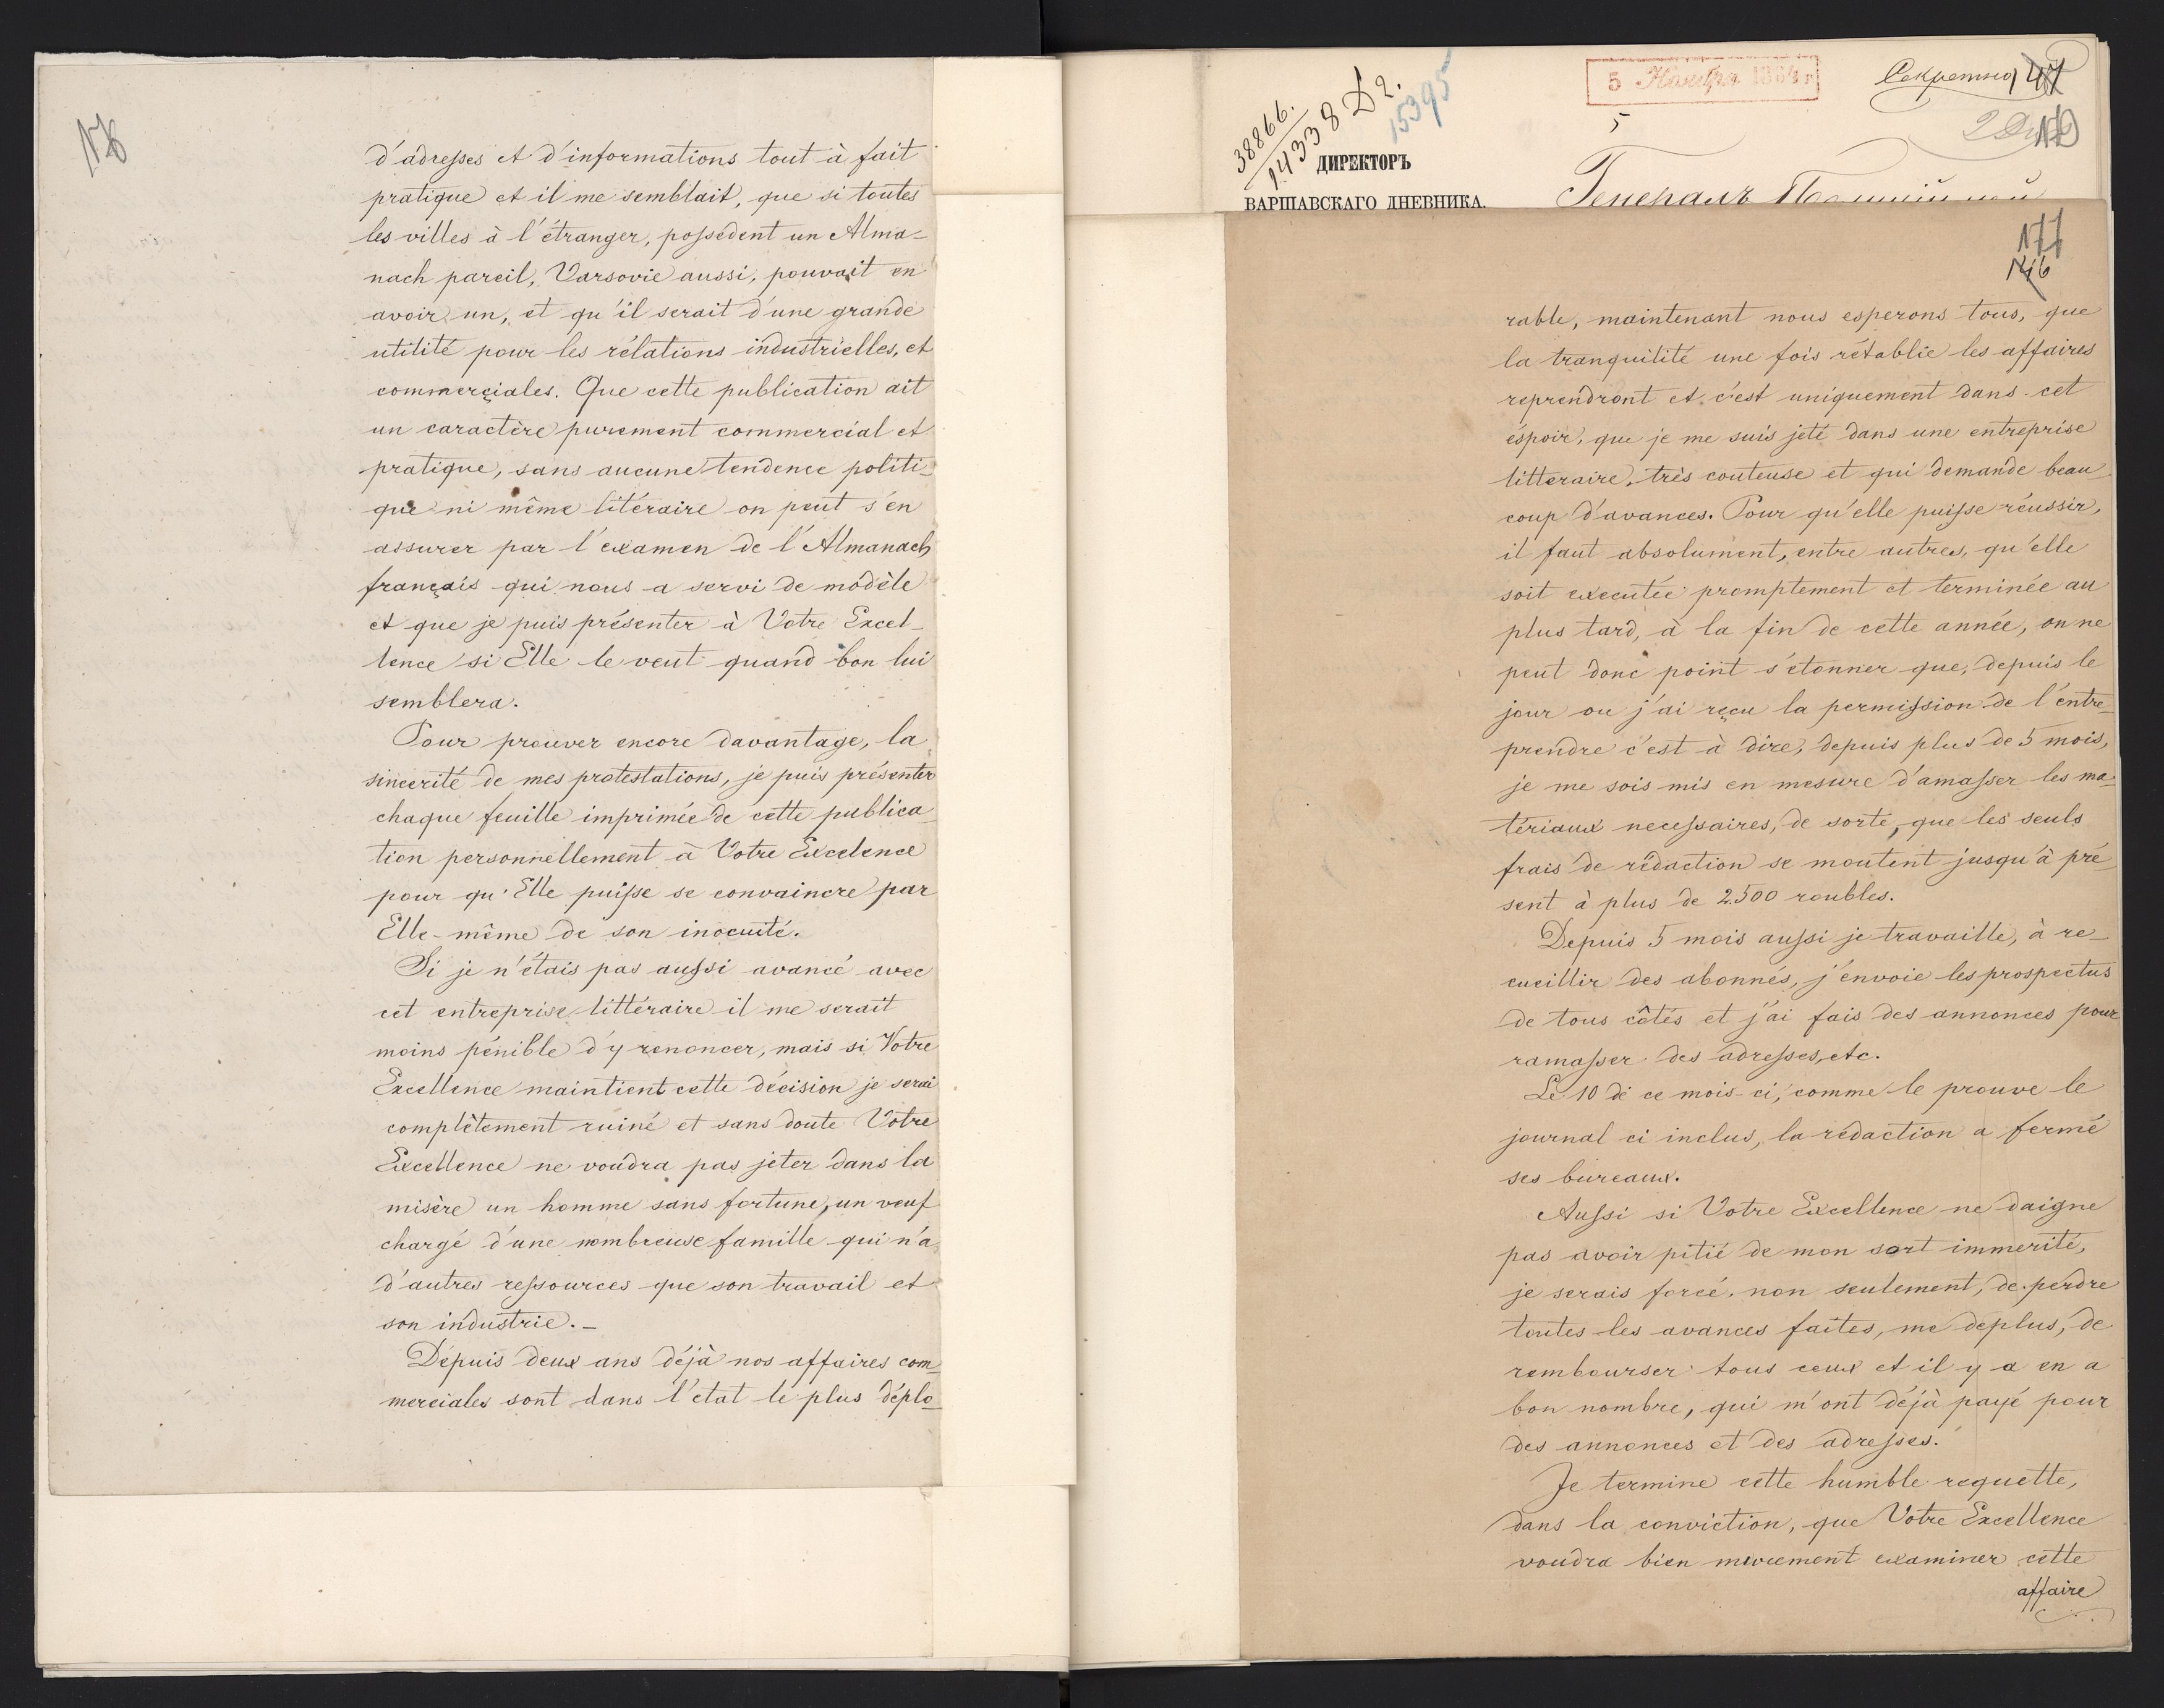 d'adresses et d'informations tout à fait
pratique et il me semblait, que si toutes
les villes à l'étranger, possèdent un Alma-
nach pareil, Varsovie aussi, pouvait en
avoir un, et qu'il serait d'une grande
utilité pour les rélations industrielles, et
commerçiales. Que cette publication ait
un caractère purement commercial et
pratique, sans aucune tendence politi-
que ni même litéraire on peut s'en
assurer par l'examen de l'Almanach
français qui nous a servi de modèle
et que je puis présenter à Votre Excel-
lence si Elle le veut quand bon lui
semblera.
Pour prouver encore davantage, la
sincerité de mes protestations, je puis présenter
chaque feuille imprimée de cette publica-
tion personnellement à Votre Excelence
pour qu'Elle puisse se convaincre par
Elle-même de son inocuité.
Si je n'étais pas aussi avancé avec
cet entreprise littéraire il me serait
moins pénible d'y renoncer, mais si Votre
Excellence maintient cette décision je serai
complètement ruiné et sans doute Votre
Excellence ne voudra pas jeter dans la
misère un homme sans fortune, un veuf
chargé d'une nombreuse famille qui n'a
d'autres ressources que son travail et
son industrie. –
Depuis deux ans déjà nos affaires com-
merciales sont dans l'etat le plus déplo-
38866.
14338 D2.
15395
5 Ноября 1864 г.
Секретно
5
ДИРЕКТОРЪ
ВАРШАВСКАГО ДНЕВНИКА.
Генералъ
177
rable, maintenant nous esperons tous, que
la tranquilité une fois rétablie les affaires
reprendront et c'est uniquement dans cet
éspoir, que je me suis jeté dans une entreprise
litteraire, très couteuse et qui demande beau-
coup d'avances. Pour qu'elle puisse réussir,
il faut absolument, entre autres, qu'elle
soit executée promptement et terminée au
plus tard, à la fin de cette année, on ne
peut donc point s'etonner que, depuis le
jour ou j'ai reçu la permission de l'entre-
prendre c'est à dire, depuis plus de 5 mois,
je me sois mis en mesure d'amasser les ma-
tériaux necessaires, de sorte, que les seuls
frais de rédaction se montent jusqu'à pré-
sent à plus de 2500 roubles.
Depuis 5 mois aussi je travaille, à re-
cueillir des abonnés, j'envoie les prospectus
de tous côtés et j'ai fais des annonces pour
ramasser des adresses, etc.
Le 10 de ce mois-ci, comme le prouve le
journal ci inclus, la rédaction a fermé
ses bureaux.
Aussi si Votre Excellence ne daigne
pas avoir pitié de mon sort immerité,
je serais forcé, non seulement, de perdre
toutes les avances faites, me deplus, de
rembourser tous ceux et il y a en a
bon nombre, qui m'ont déjà payé pour
des annonces et des adresses.
Je termine cette humble requette,
dans la conviction, que Votre Excellence
voudra bien murement examiner cette
affaire